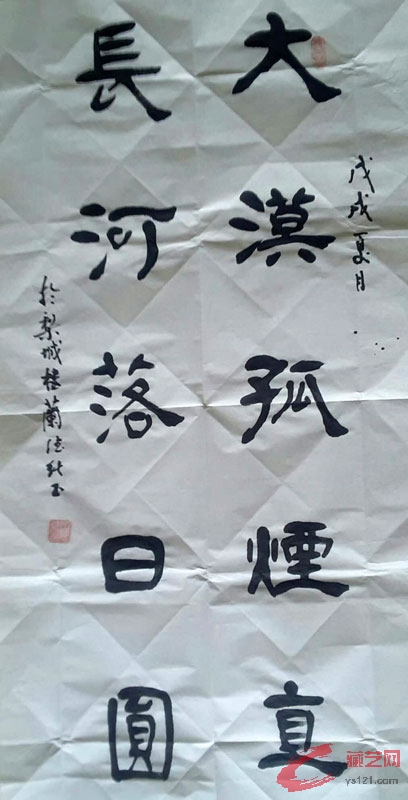 大漠孤煙直
長河落日圓
戊戌夏月
於梨城樓蘭
藏艺网
ys121.com